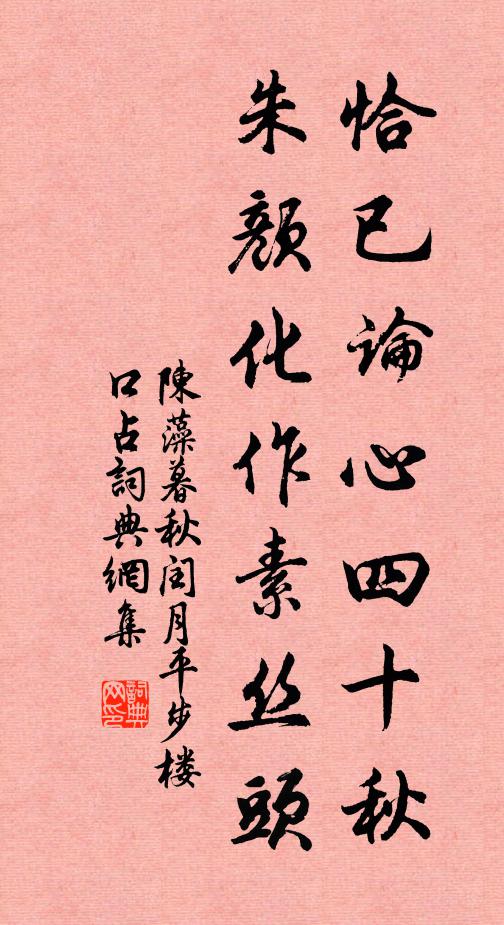 恰已論心四十秋
朱顏化作素丝頭
陳藻暮秋閏月平步楼
口占詞典網集
詞典网印